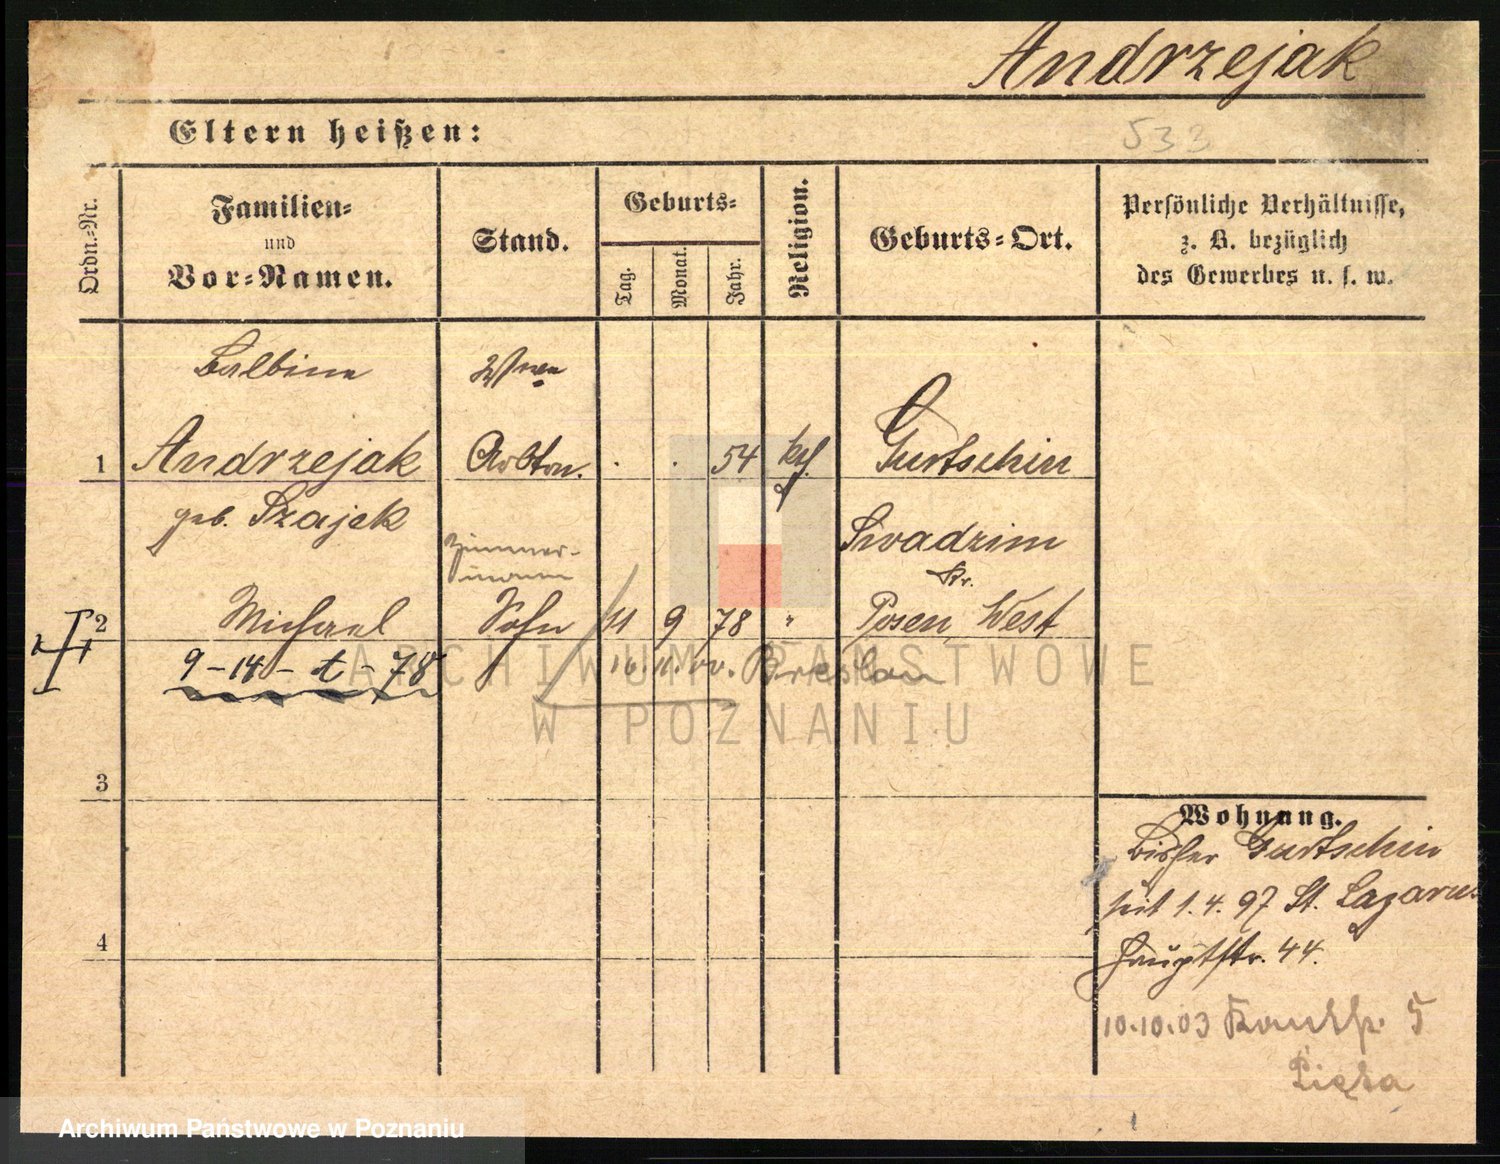 Andrzejak
Eltern heißen:
533
Ordn.-Nr.
Familien-
und
Vor-Namen.
Stand.
Geburts-
Tag.
Monat.
Jahr.
Religion.
Geburts-Ort.
Persönliche Verhältnisse,
z. B. bezüglich
des Gewerbes u. s. w.
Balbine Wwe
1 Andrzejak Arbtrn. 54 kth. Gurtschin
geb. Szajek
Zimmer-
mann
Swadzim
Kr.
2 Michael Sohn 11 9 78 " Posen West
9-14-t-78 16. 11. 00. Breslau
3
4
Wohnung.
bisher Gurtschin
seit 1.4.97 St. Lazarus
Hauptstr. 44.
10.10.03 5
ARCHIWUM PAŃSTWOWE
W POZNANIU
Archiwum Państwowe w Poznaniu